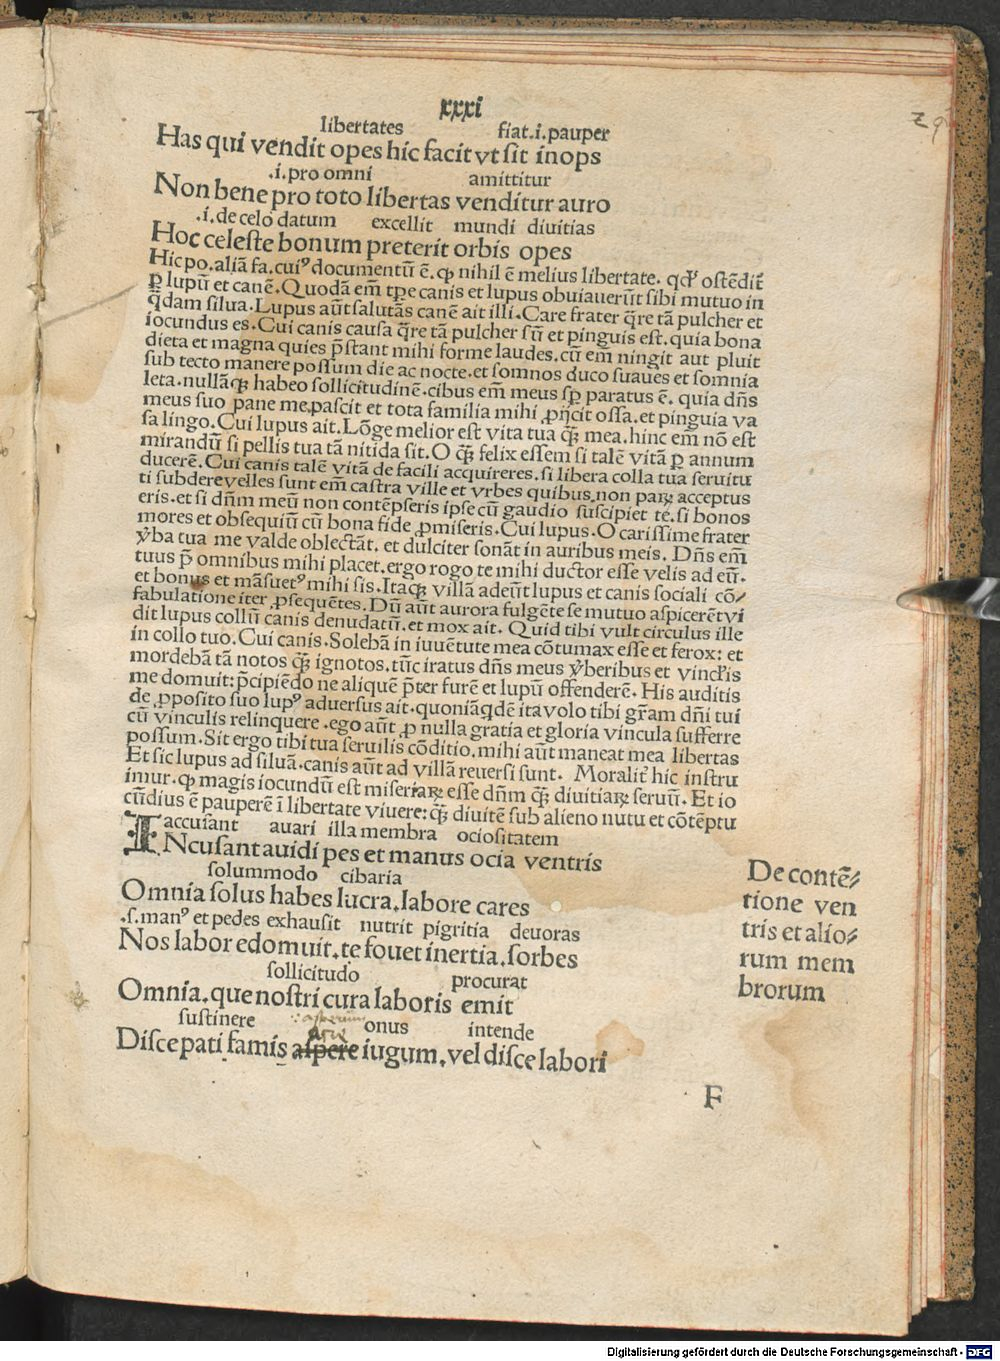 xxxi
Z 9
libertates fiat.i.pauper
Has qui vendit opes hic facit vt sit inops
.i.pro omni amittitur
Non bene pro toto libertas venditur auro
.i.de celo datum excellit mundi diuitias
Hoc celeste bonum preterit orbis opes
Hic po.aliā fa.cuiꝰ documentū ē.ꝙ nihil ē melius libertate. qd' ostēdit
ꝑ lupū et canē.Quodā em̄ tꝑe canis et lupus obuiauerūt sibi mutuo in
q̄dam silua.Lupus aūt salutās canē ait illi.Care frater q̄re tā pulcher et
iocundus es.Cui canis causa q̄re tā pulcher sū et pinguis est.quia bona
dieta et magna quies p̄stant mihi forme laudes.cū em̄ ningit aut pluit
sub tecto manere possum die ac nocte.et somnos duco suaues et somnia
leta.nullāqꝫ habeo sollicitudinē.cibus em̄ meus sꝑ paratus ē. quia dn̄s
meus suo pane me.pascit et tota familia mihi ꝓijcit ossa.et pinguia va
sa lingo.Cui lupus ait.Lōge melior est vita tua qꝫ̄ mea.hinc em̄ nō est
mirandū si pellis tua tā nitida sit.O qꝫ̄ felix essem si talē vitā ꝑ annum
ducerē.Cui canis talē vitā de facili acquireres.si libera colla tua seruitu
ti subdere velles sunt em̄ castra ville et vrbes quibus non paꝝ acceptus
eris.et si dn̄m meū non contēpseris ipse cū gaudio suscipiet te.si bonos
mores et obsequiū cū bona fide ꝓmiseris.Cui lupus.O carissime frater
v̉ba tua me valde oblectāt. et dulciter sonāt in auribus meis. Dn̄s em̄
tuus p̄ omnibus mihi placet.ergo rogo te mihi ductor esse velis ad eū.
et bonus et māsuetꝰ mihi sis.Itaqꝫ villā adeūt lupus et canis sociali cō⸗
fabulatione iter ꝓsequētes.Dū aūt aurora fulgēte se mutuo aspicerēt vi
dit lupus collū canis denudatū.et mox ait. Quid tibi vult circulus ille
in collo tuo.Cui canis.Solebā in iuuētute mea cōtumax esse et ferox: et
mordebā tā notos qꝫ̄ ignotos.tūc iratus dn̄s meus v̉beribus et vinclis
me domuit: p̄cipiēdo ne aliquē p̄ter furē et lupū offenderē. His auditis
de ꝓposito suo lupꝰ aduersus ait.quoniā qdē ita volo tibi gr̄am dn̄i tui
cū vinculis relinquere.ego aūt ꝓ nulla gratia et gloria vincula sufferre
possum.Sit ergo tibi tua seruilis cōditio.mihi aūt maneat mea libertas
Et sic lupus ad siluā.canis aūt ad villā reuersi sunt. Moralit̉ hic instru
imur.ꝙ magis iocundū est miseriaꝝ esse dn̄m qꝫ̄ diuitiaꝝ seruū. Et io
cūdius ē pauperē ī libertate viuere: qꝫ̄ diuitē sub alieno nutu et cōtēptu
accusant auari illa membra ociositatem
INcusant auidi pes et manus ocia ventris
solummodo cibaria
Omnia solus habes lucra.labore cares
.s.manꝰ et pedes exhausit nutrit pigritia deuoras
Nos labor edomuit.te fouet inertia.sorbes
sollicitudo procurat
Omnia.que nostri cura laboris emit
sustinere onus intende
Disce pati famis aspere iugum.vel disce labori
De contē⸗
tione ven
tris et alio⸗
rum mem
brorum
F
Digitalisierung gefördert durch die Deutsche Forschungsgemeinschaft - DFG